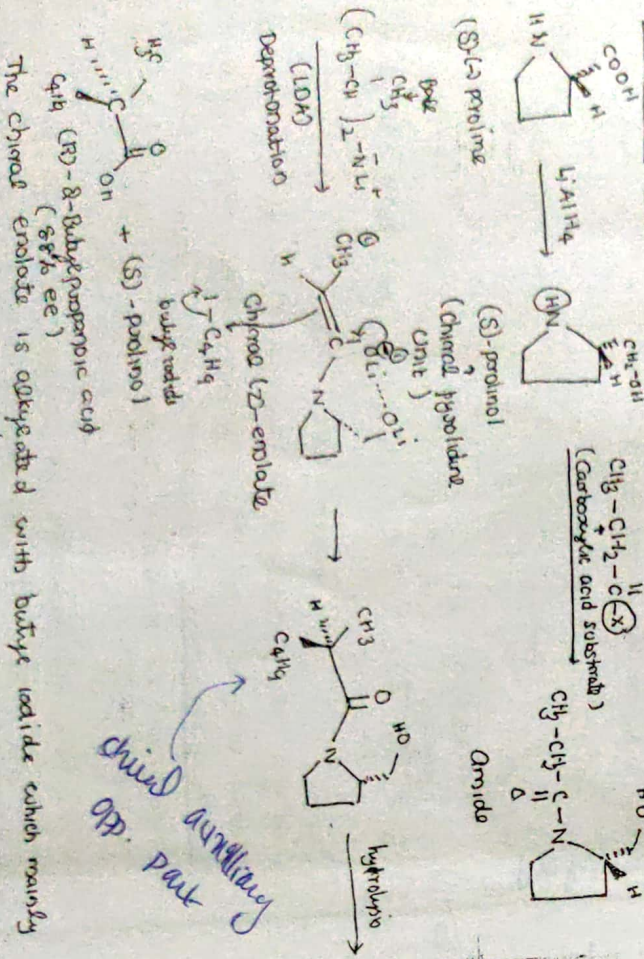 COOH
HN
H
(S)-(-) proline
LiAlH4
CH2-OH
HN
H
(S)-prolinol
(chiral pyrrolidine
unit)
CH3-CH2-C-X
(Carboxylic acid substrate)
HO
H
CH3-CH2-C-N
O
Amide
Base
CH3
(CH3-CH)2-NLi+
(LDA)
Deprotonation
CH3
H
C
OLi
OLi
N
Chiral (Z)-enolate
I-C4H9
butyl iodide
CH3
H
C4H9
O
HO
N
hydrolysis
chiral auxilliary
opp. part
H3C
H
C
O
OH
C4H9
+ (S)-prolinol
(R)-2-Butylpropanoic acid
(88% ee)
The chiral enolate is alkylated with butyl iodide which mainly